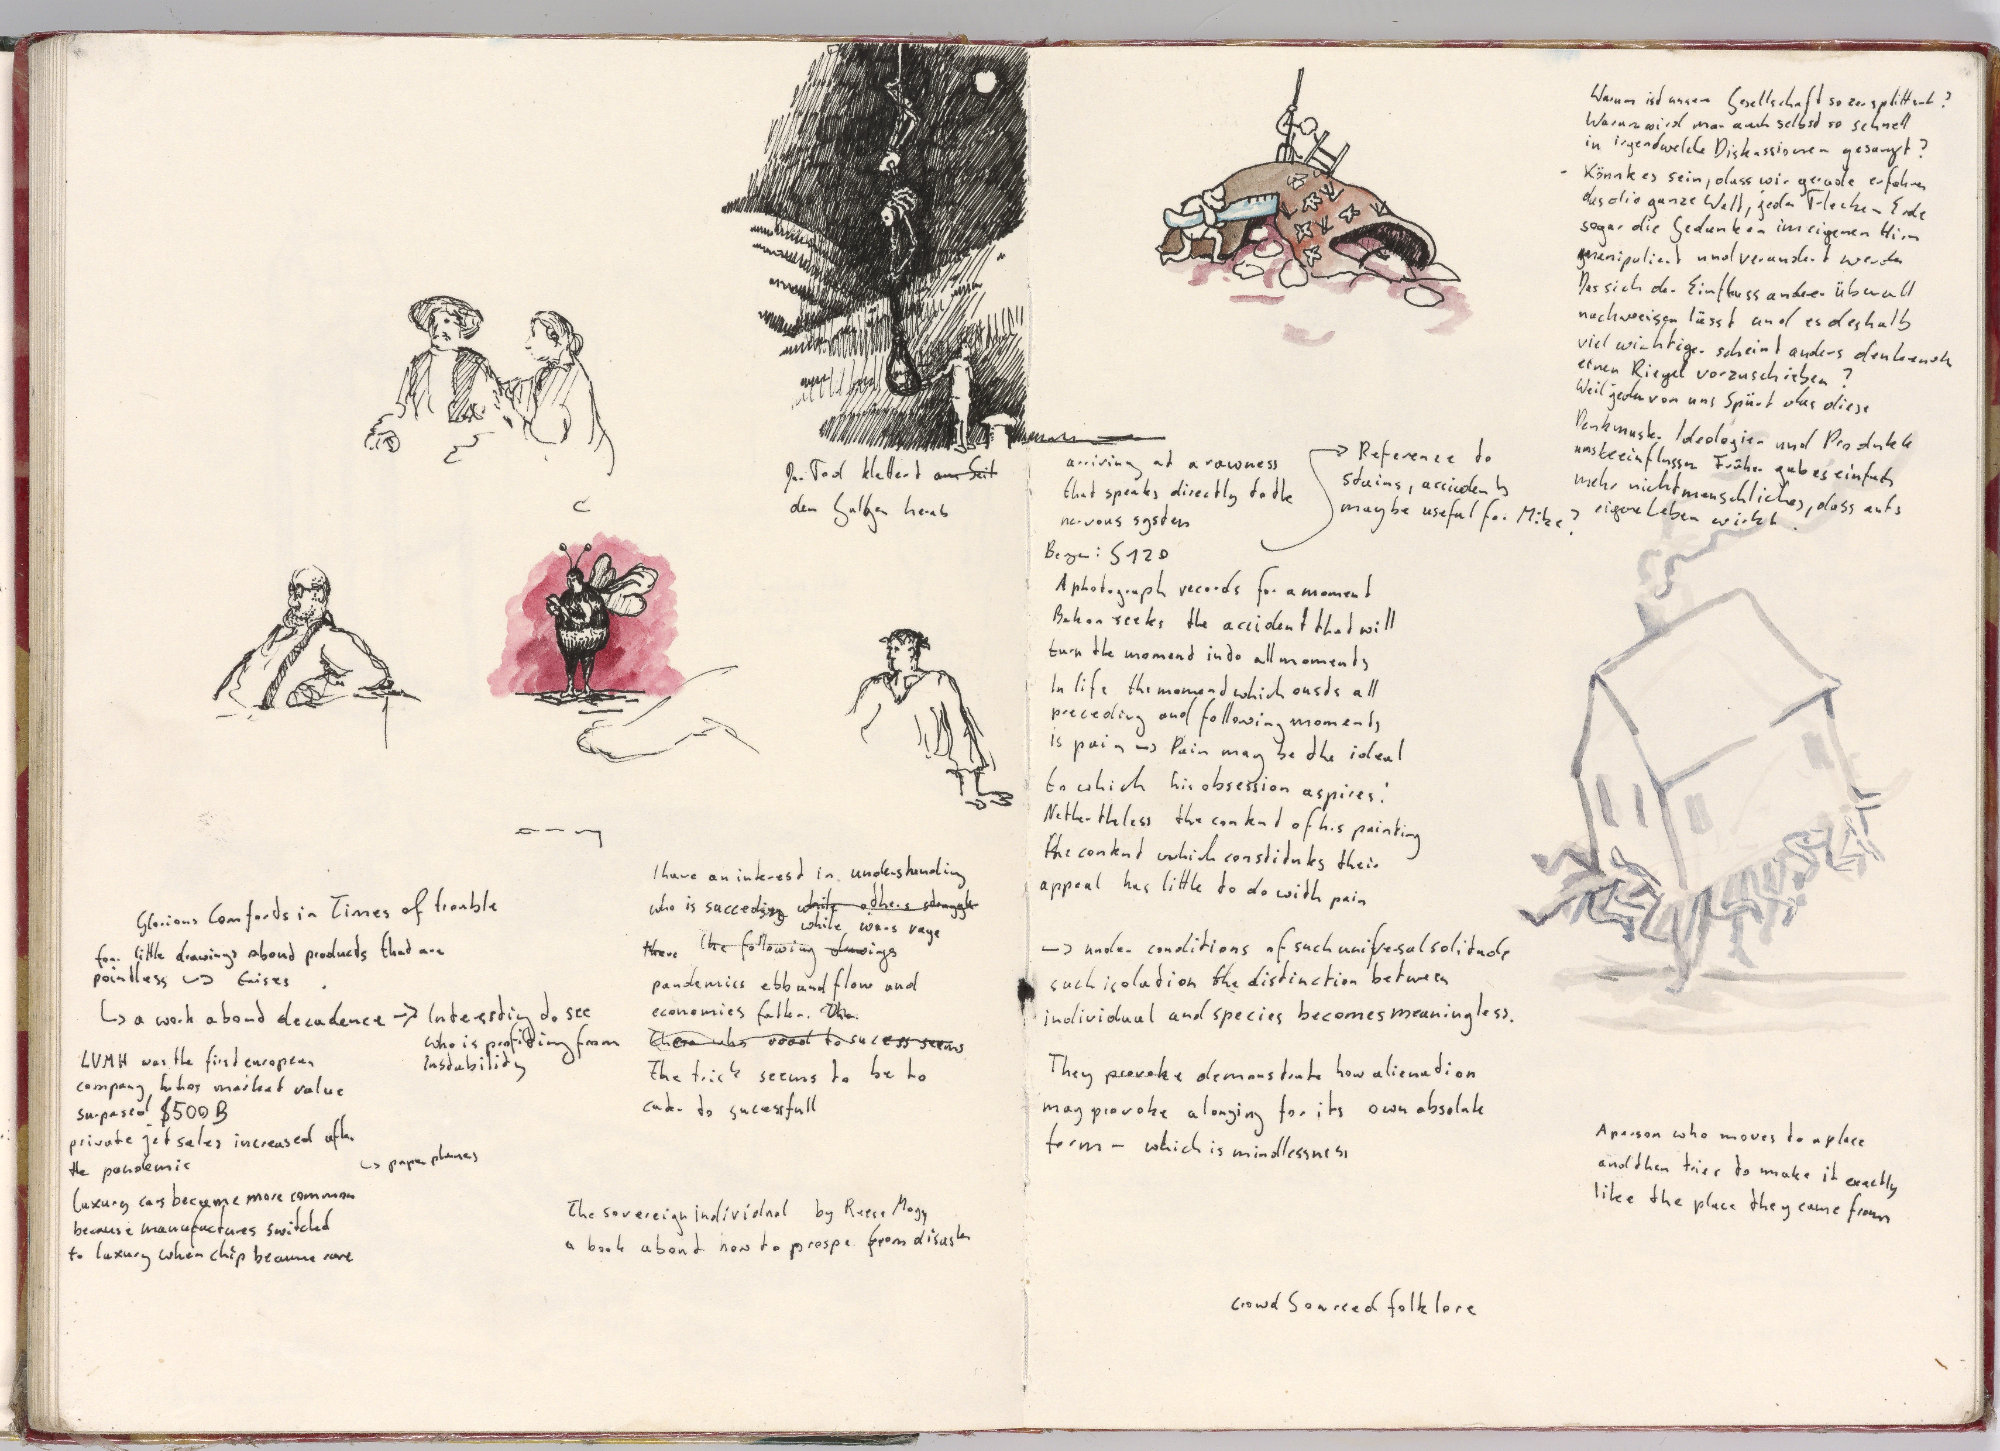 Der Tod klettert am Seil
den Galgen herab
Glorious Comforts in Times of trouble
four little drawings about products that are
pointless
↳ a work about decadence → Interesting to see
who is profiting from
Instability
LVMH was the first european
company, market value
surpased $500B
private jet sales increased after
the pandemic
↳ paper planes
Luxury cars became more common
because manufactures switched
to luxury when chip became rare
I have an interest in understanding
who is succeding while others struggle
while wars rage
there the following drawings
pandemics ebb and flow and
economies falter. The
The trick seems to be to
cater to sucessfull
The sovereign individual by Reese Mogg
a book about how to prospe from disaster
arriving at a rawness
that speaks directly to the
nervous system
→ Reference to
stains, accidents
maybe useful for Mike?
Berger: S120
A photograph records for a moment
Bakon seeks the accident that will
turn the moment into all moments
In life the moment which ousts all
preceding and following moments
is pain → Pain may be the ideal
to which his obsession aspires.
Nethertheless the content of his painting
the content which constitutes their
appeal has little to do with pain
→ under conditions of such universal solitude
such isolation the distinction between
individual and species becomes meaningless.
They provoke demonstrate how alienation
may provoke a longing for its own absolute
form – which is mindlessness
Warum ist unsere Gesellschaft so zersplittert?
Warum wird man auch selbst so schnell
in irgendwelche Diskussionen gesaugt?
- Könnte es sein, dass wir gerade erfahren
das die ganze Welt, jeder Flecken Erde
sogar die Gedanken im eigenen Hirn
manipuliert und verändert werden
Das sich der Einfluss anderer überall
nachweisen lässt und es deshalb
viel wichtiger scheint anders denkenden
einen Riegel vorzuschieben?
Weil jeder von uns Spürt das diese
Denkmuster Ideologien und Produkte
uns beeinflussen Früher gab es einfach
mehr nichtmenschliches, dass aufs
eigene Leben wirkt.
A person who moves to a place
and then tries to make it exactly
like the place they came from
crowd Sourced folklore